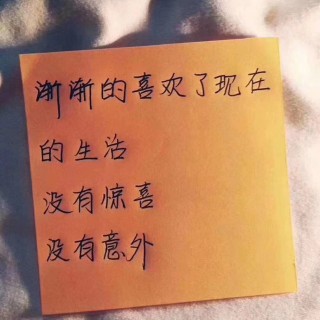 渐渐的喜欢了现在
的生活
没有惊喜
没有意外